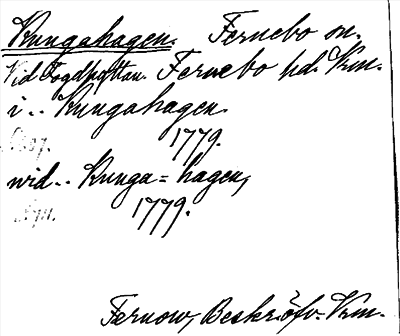 Kungahagen. Fernebo sn.
Vid Fogdhyttan. Fernebo hd. Vrm.
i.. Kungahagen
1779.
wid.. Kunga=hagen,
1779.
Fernow, Beskrifv. Vrm.